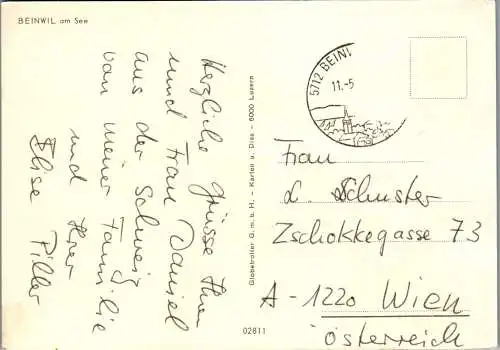 BEINWIL am See
Herzliche Grüsse Ihnen
und Frau Daniel
aus der Schweiz
von meiner Familie
und Ihrer
Elise Piller
Globetrotter G.m.b.H. - Karten u. Dias - 6000 Luzern
02811
5712 BEINW
11.-5
Frau
L. Schuster
Zschokkegasse 73
A-1220 Wien
Österreich